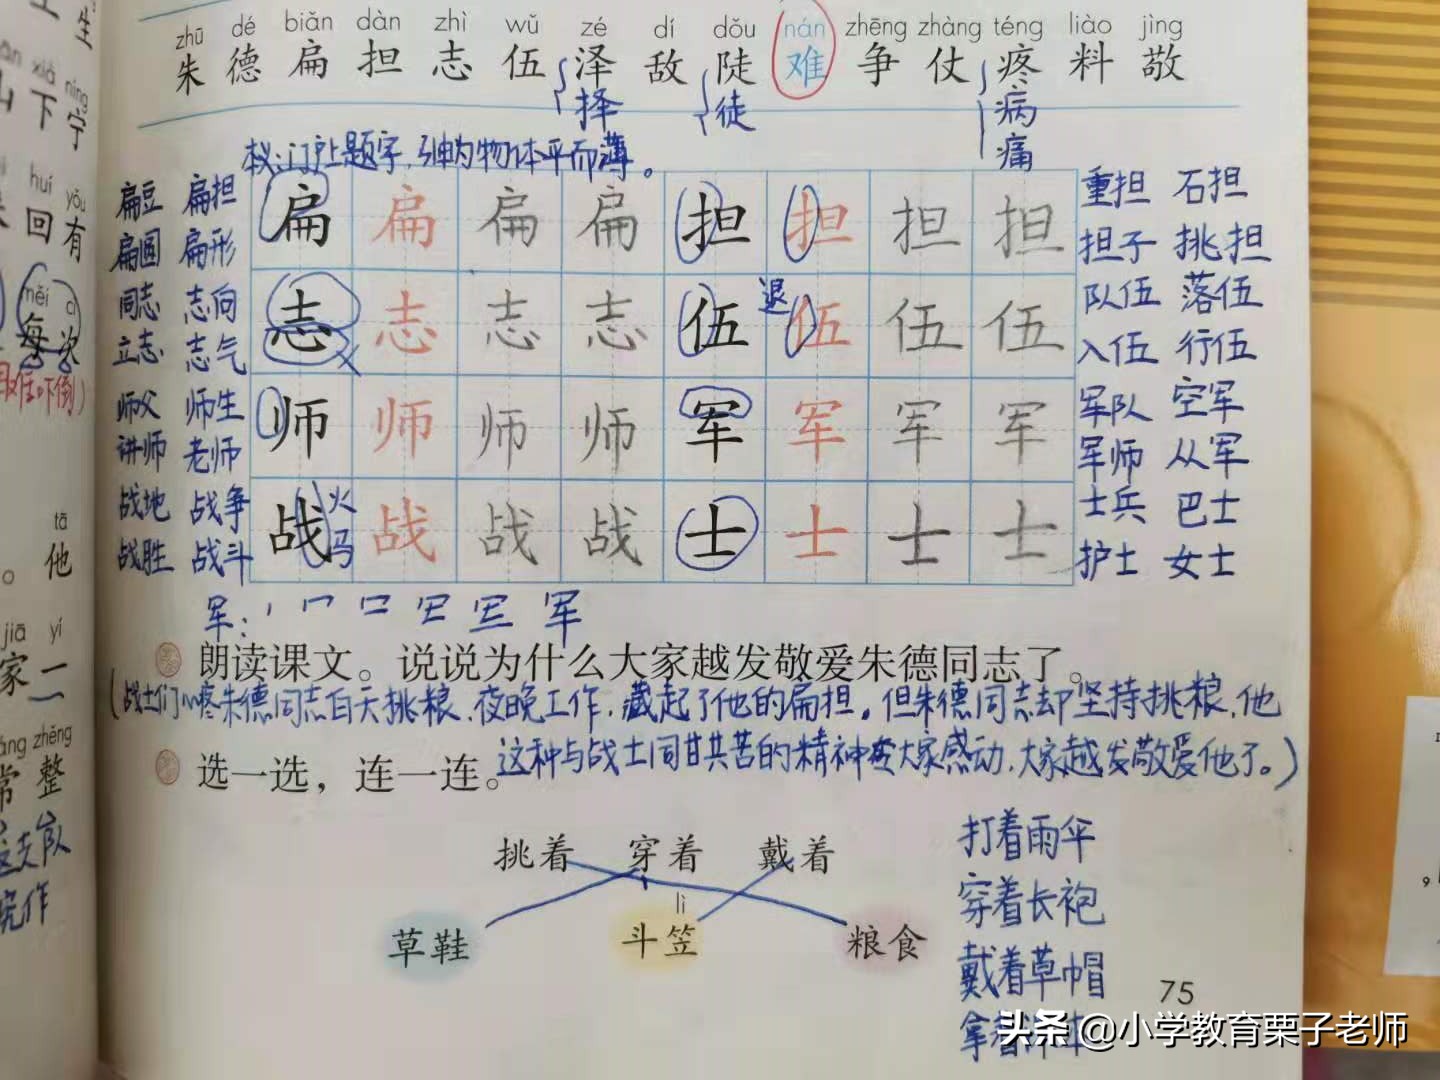 zhū dé biǎn dàn zhì wǔ zé dí dǒu nán zhēng zhàng téng liào jìng
朱 德 扁 担 志 伍 泽 敌 陡 难 争 仗 疼 料 敬
择 徒 病
痛
本义:门户上题字,引申为物体平而薄。
扁豆 扁担 扁 扁 扁 扁 担 担 担 担 重担 石担
扁圆 扁形 担子 挑担
同志 志向 志 志 志 志 伍 退 伍 伍 伍 队伍 落伍
立志 志气 入伍 行伍
师父 师生 师 师 师 师 军 军 军 军 军队 空军
讲师 老师 军师 从军
战地 战争 战 火 战 战 战 士 士 士 士 士兵 巴士
战胜 战斗 马 护士 女士
军: 军
朗读课文。说说为什么大家越发敬爱朱德同志了。
(战士们心疼朱德同志白天挑粮,夜晚工作,藏起了他的扁担。但朱德同志却坚持挑粮,他
这种与战士同甘共苦的精神使大家感动,大家越发敬爱他了。)
选一选,连一连。
挑着 穿着 戴着
lì
草鞋 斗笠 粮食
打着雨伞
穿着长袍
戴着草帽
75
头条 @小学教育栗子老师
山 下 宁
huí yǒu
回 有
měi cì
每次
tā
他
jiā yí
家 一
zhěng
常 整
这支队